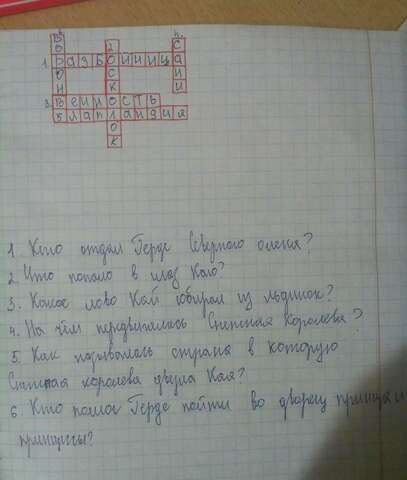 ворон
1. Разбойница
2 осколок
4. Сани
3. Вечность
5 Лапландия
1. Кто отдал Герде Северного оленя?
2. Что попало в глаз Каю?
3. Какое слово Кай собирал из льдинок?
4. На чём передвигалась Снежная Королева?
5. Как называлась страна в которую
Снежная королева увезла Кая?
6 Кто помог Герде пойти во дворец принца и
принцессы?